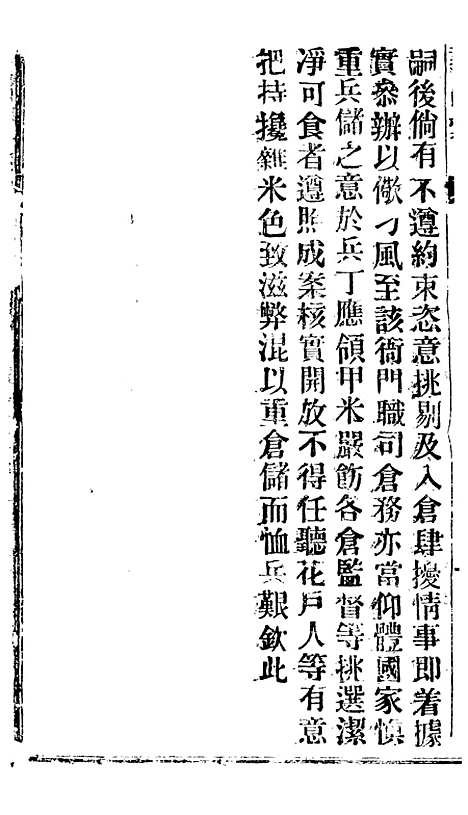 嗣後倘有不遵約束恣意挑剔及入倉肆擾情事卽着據
實叅辦以儆刁風至該衙門職司倉務亦當仰體國家愼
重兵儲之意於兵丁應領甲米嚴飭各倉監督等挑選潔
淨可食者遵照成案核實開放不得任聽花戸人等有意
把持攙雜米色致滋弊混以重倉儲而恤兵艱欽此